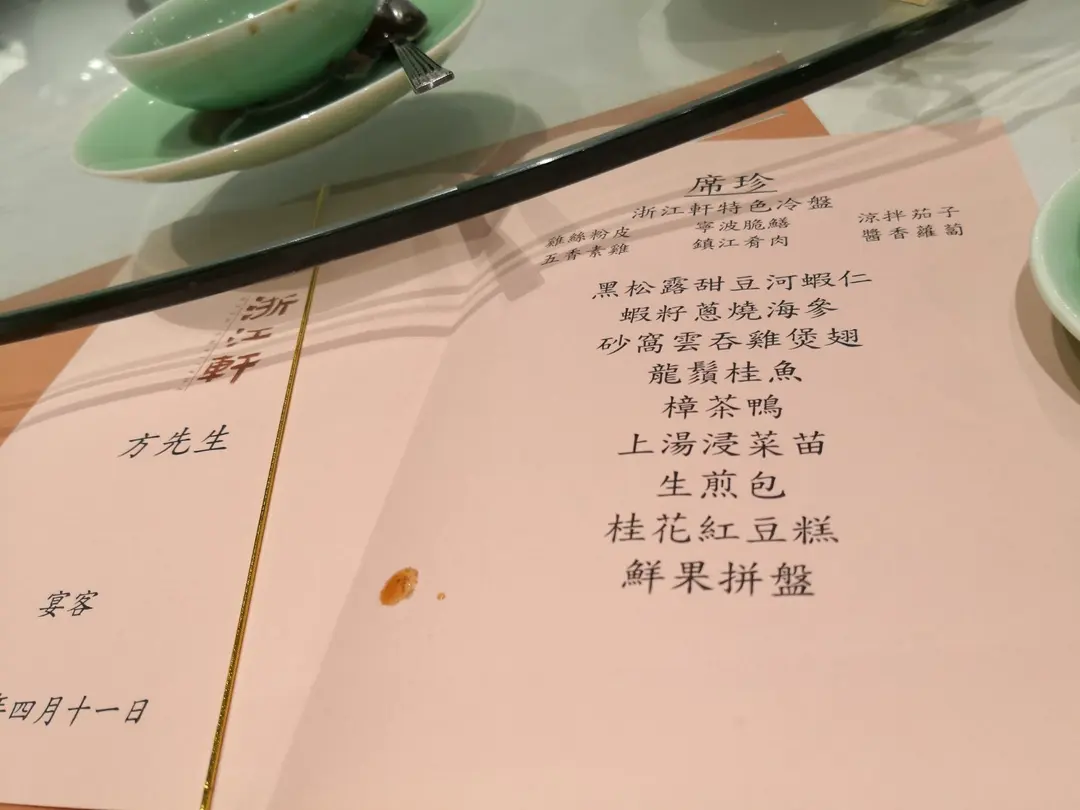 浙江軒
方先生
宴客
年四月十一日
席珍
浙江軒特色冷盤
雞絲粉皮 寧波脆鱔 涼拌茄子
五香素雞 鎮江肴肉 醬香蘿蔔
黑松露甜豆河蝦仁
蝦籽蔥燒海參
砂窩雲吞雞煲翅
龍鬚桂魚
樟茶鴨
上湯浸菜苗
生煎包
桂花紅豆糕
鮮果拼盤